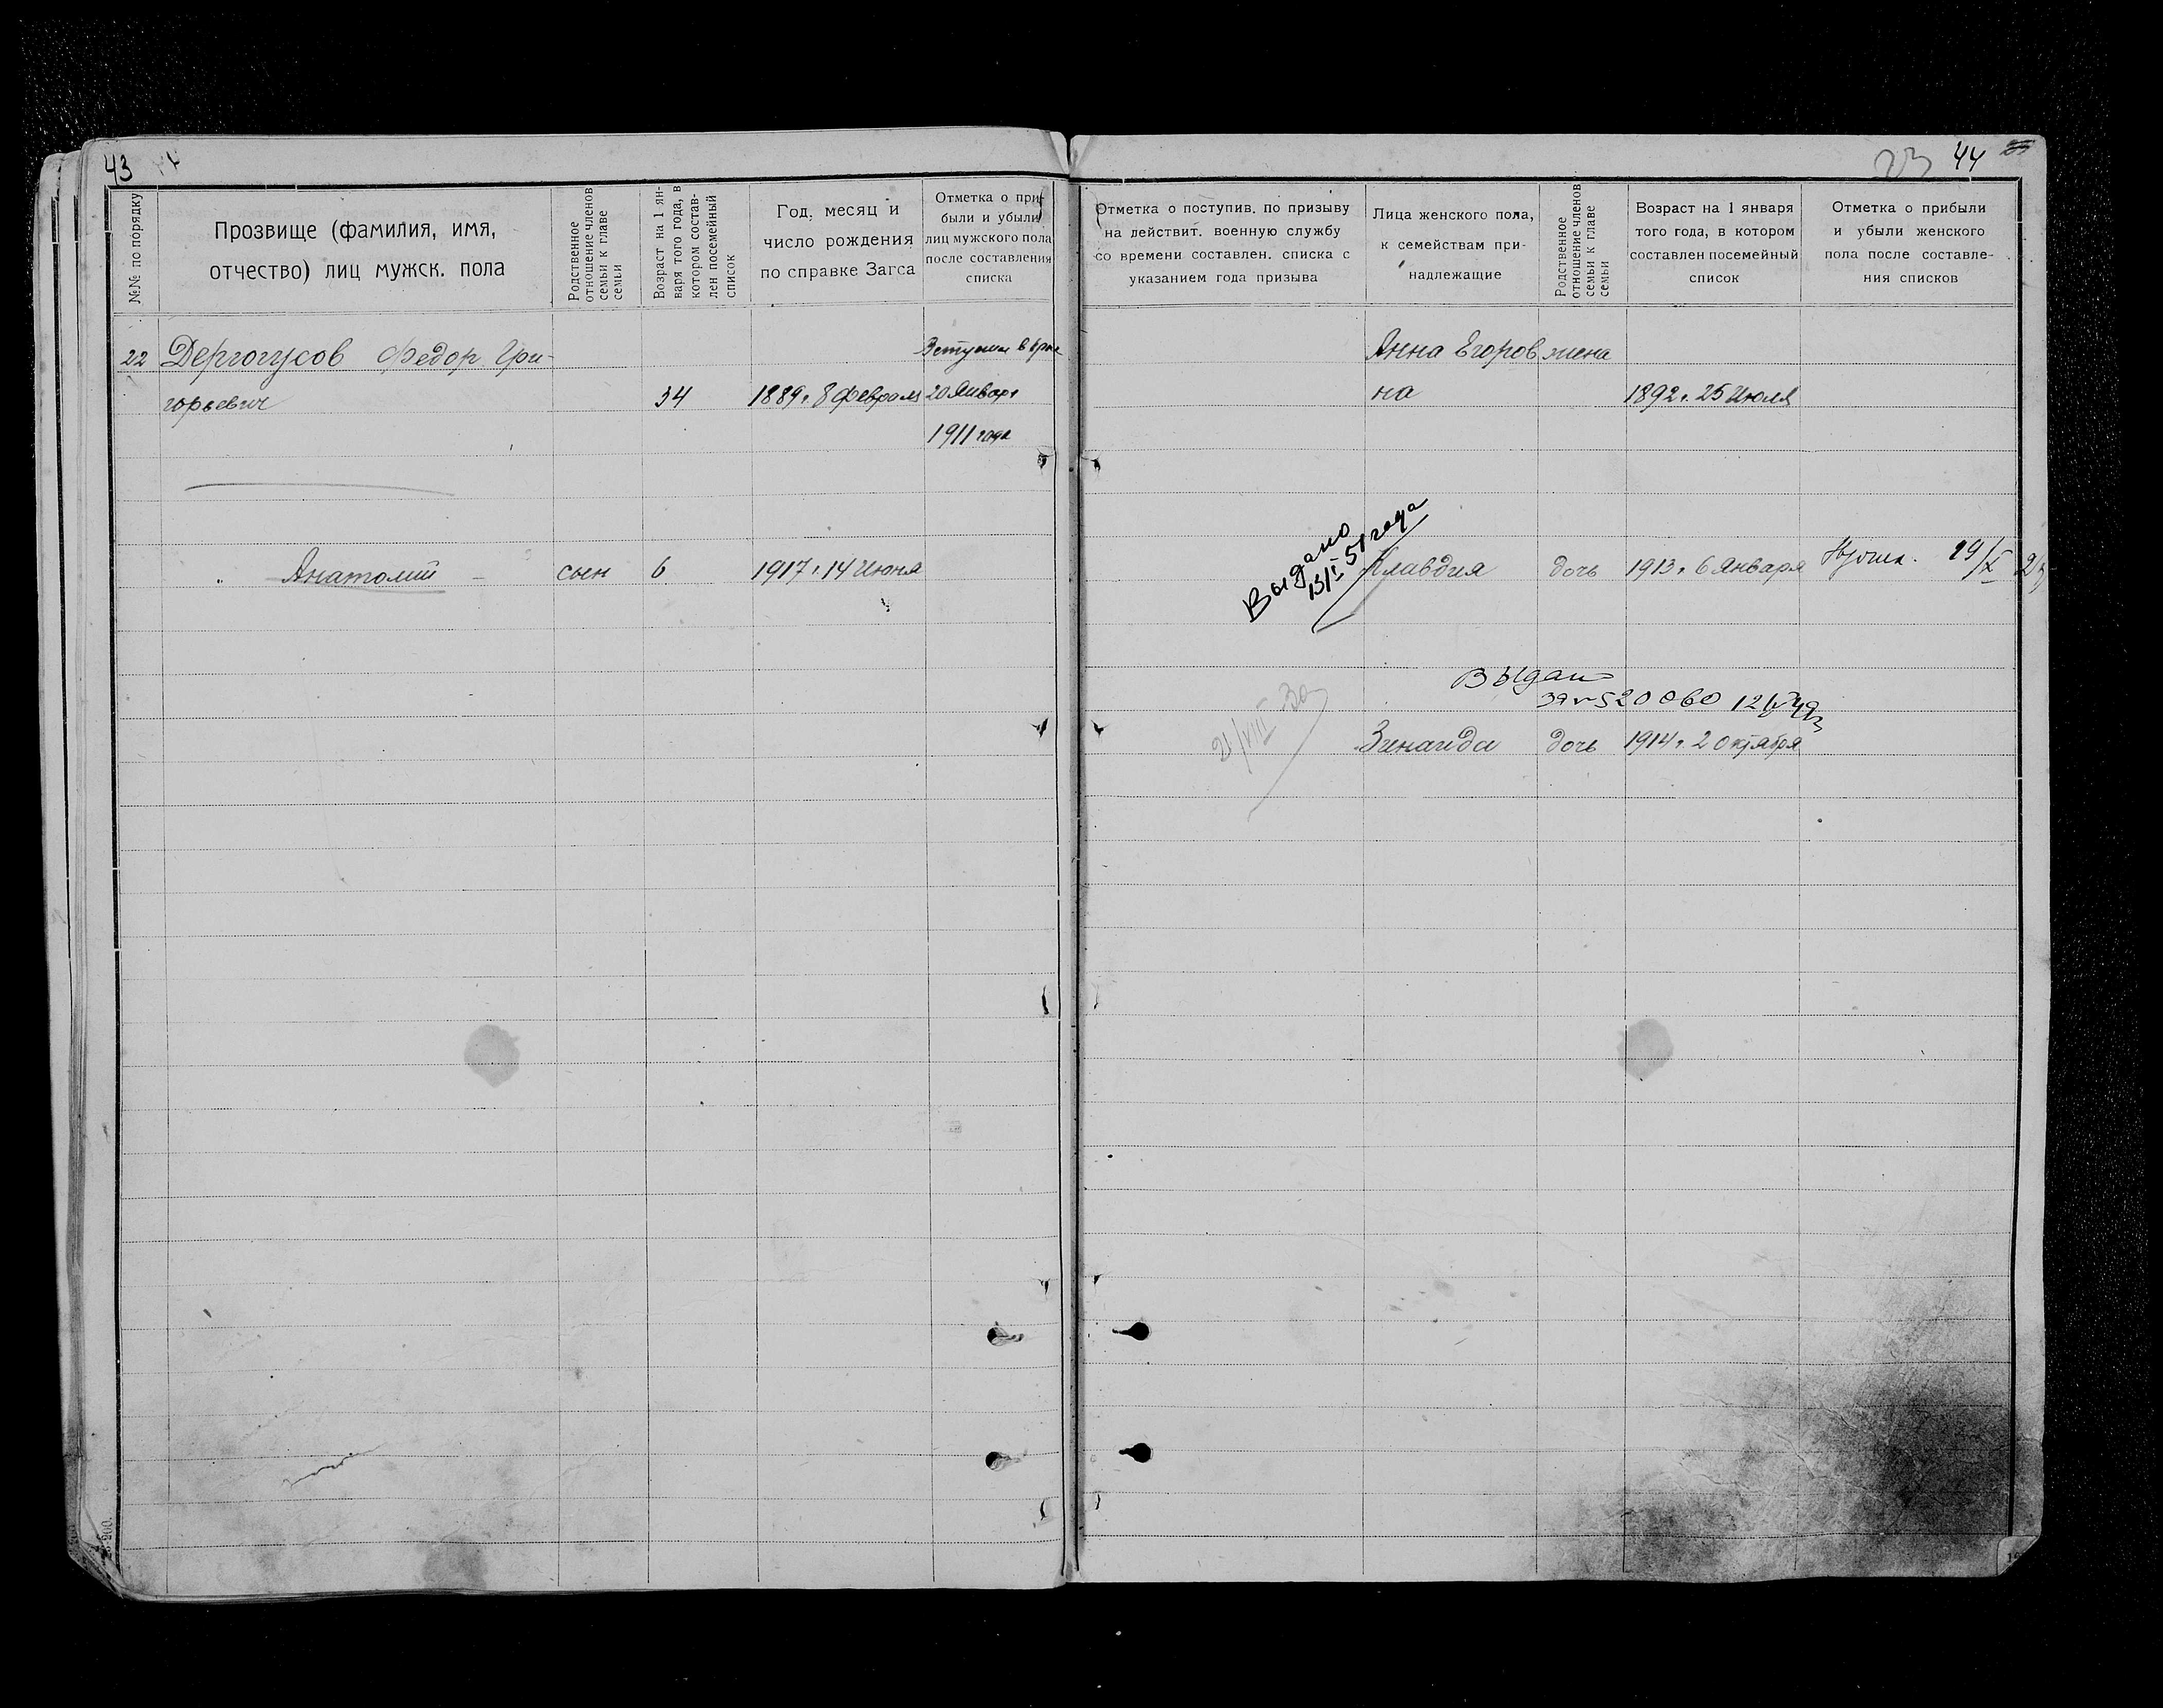 43
№№ по порядку
Прозвище (фамилия, имя,
отчество) лиц мужск. пола
Родственное
отношение членов
семьи к главе
семьи
Возраст на 1 ян-
варя того года, в
котором состав-
лен посемейный
список
Год, месяц и
число рождения
по справке Загса
Отметка о при-
были и убыли
лиц мужского пола
после составления
списка
22 Дергоусов Федор Гри-
горьевич 34 1889 г. 8 февраля
в брак
20 Января
1911 года
" Анатолий – сын 6 1917 г. 14 Июня
23 44
Отметка о поступив. по призыву
на действит. военную службу
со времени составлен. списка с
указанием года призыва
Лица женского пола,
к семействам при-
надлежащие
Родственное
отношение членов
семьи к главе
семьи
Возраст на 1 января
того года, в котором
составлен посемейный
список
Отметка о прибыли
и убыли женского
пола после составле-
ния списков
Анна Егоров жена
на 1892 г. 25 Июля
Выдано
13/I 51 года
Клавдия дочь 1913 г. 6 Января 29/X
Выдано
21/VIII 30
Зинаида дочь 1914 г. 2 октября